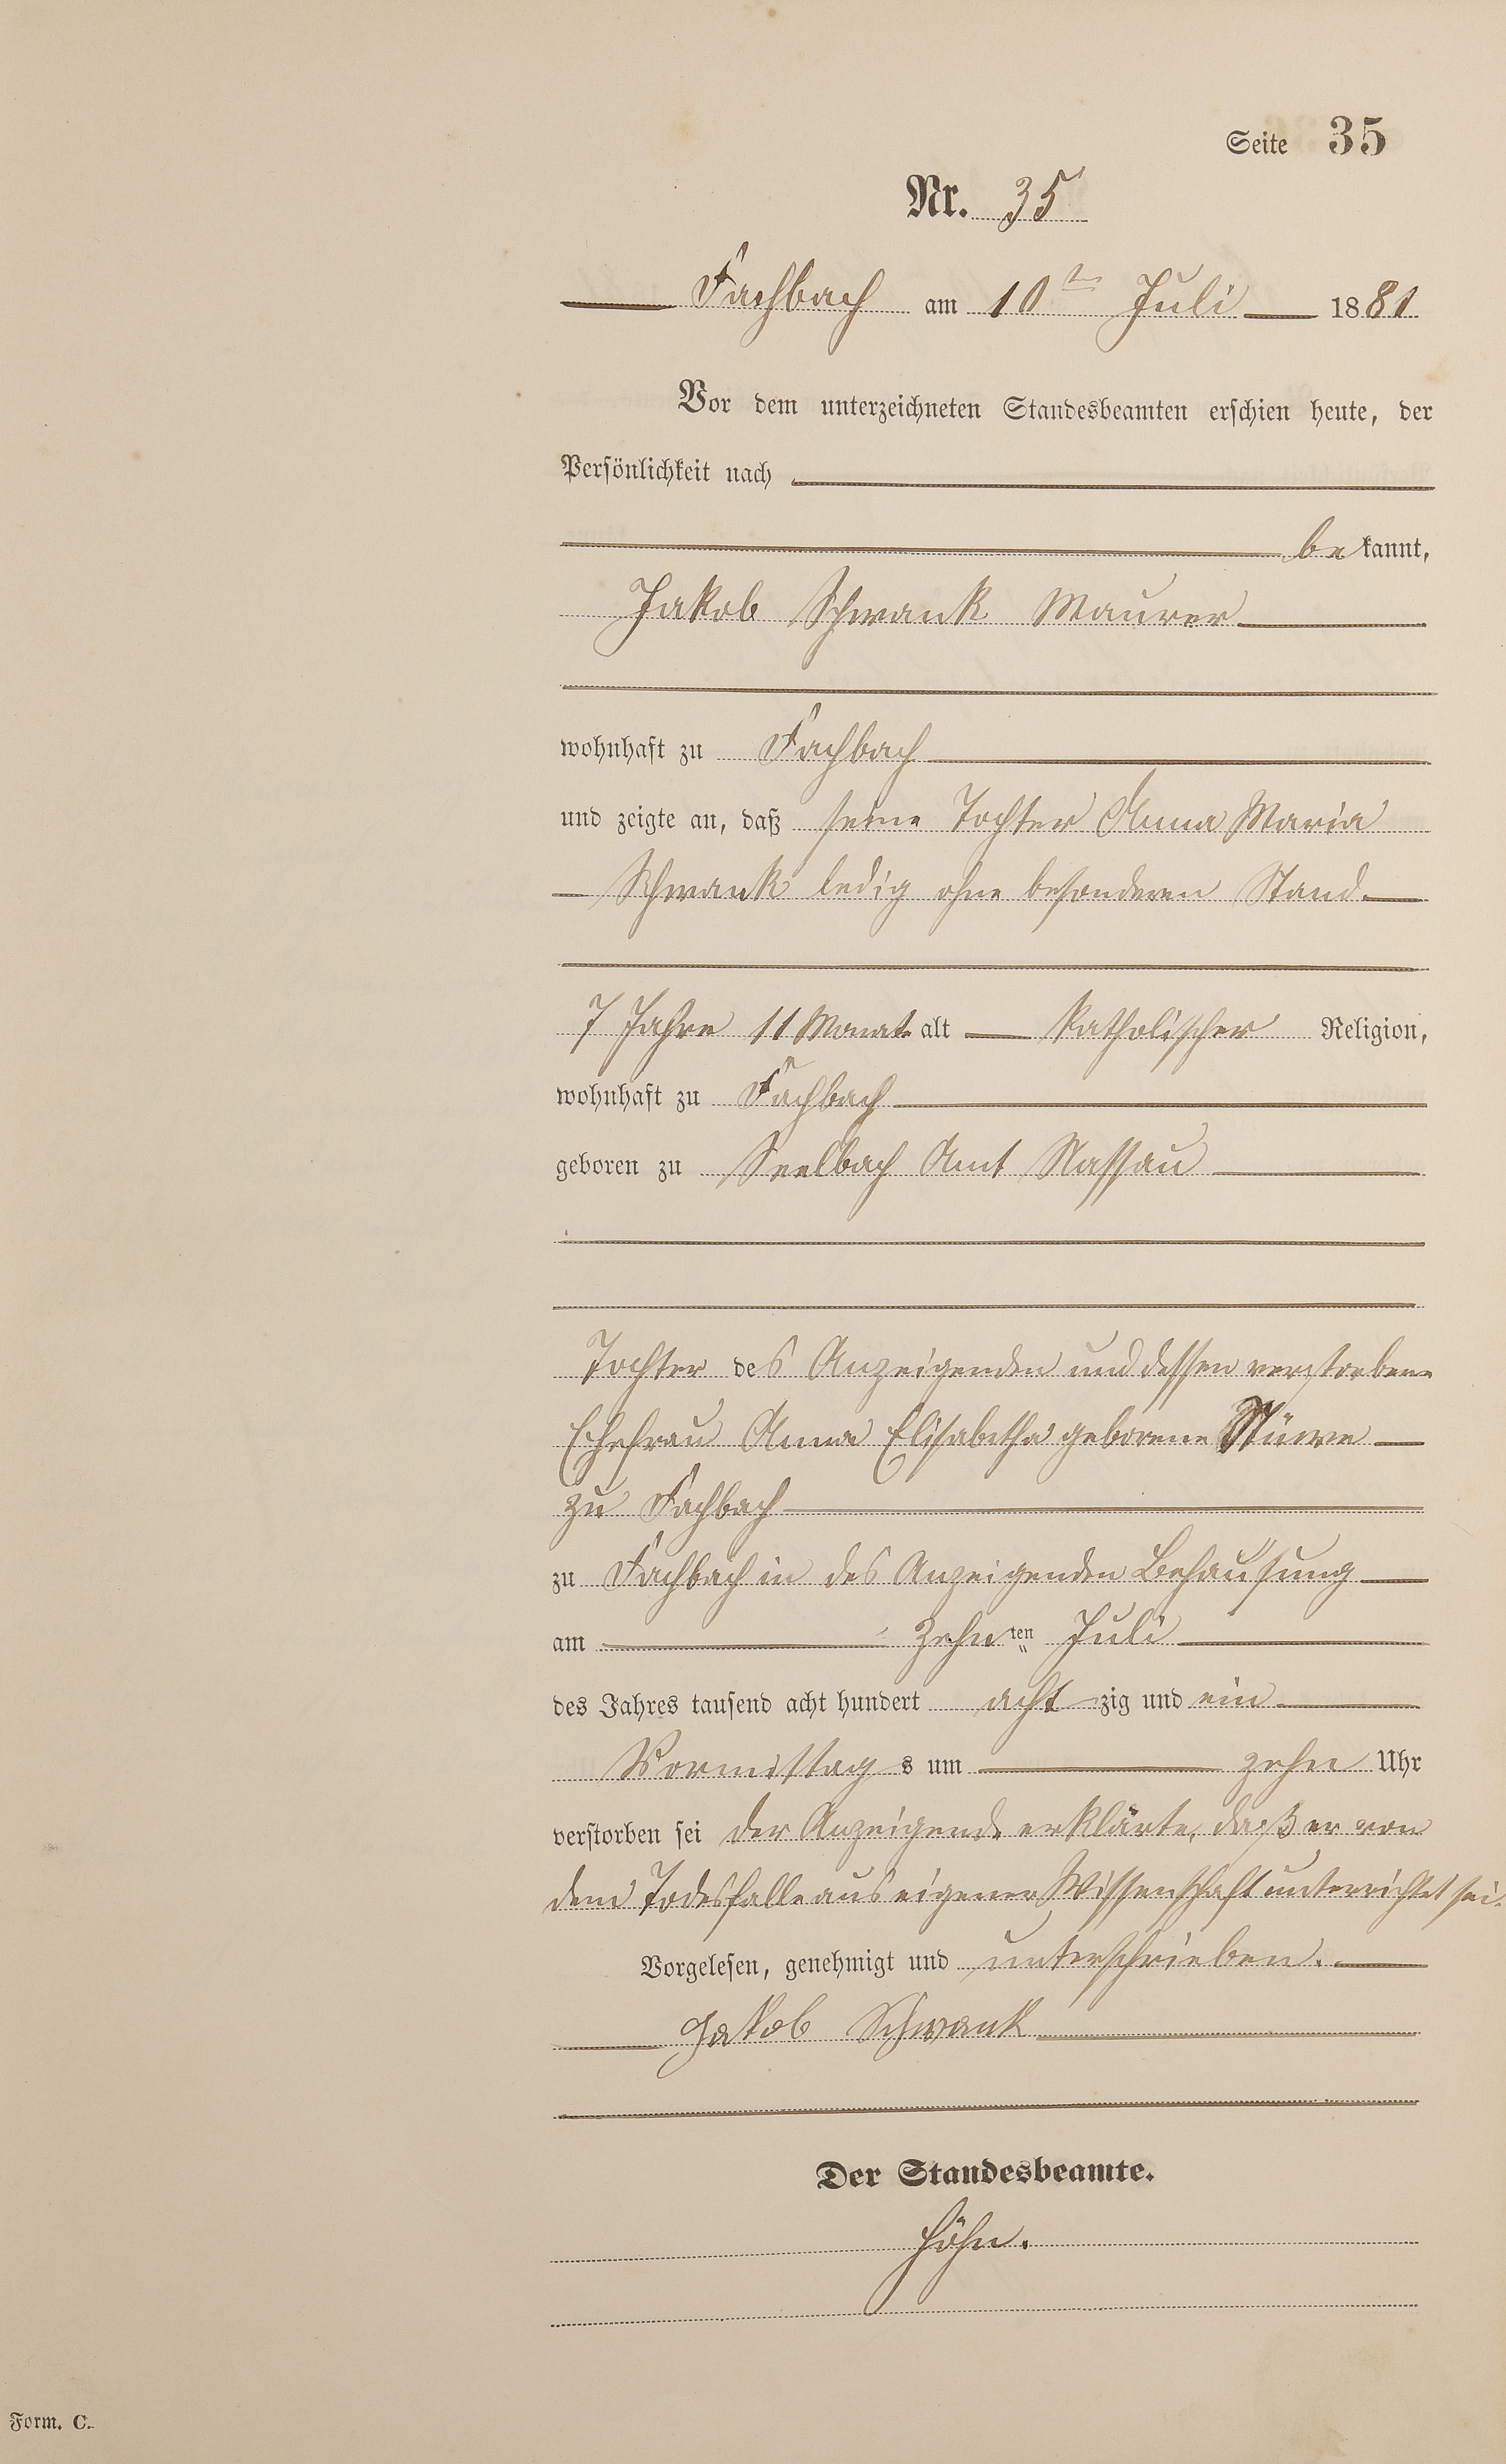 Seite 35
Nr. 35
Fachbach am 10ten Juli 1881
Vor dem unterzeichneten Standesbeamten erschien heute, der
Persönlichkeit nach
bekannt,
Jakob Schwank Maurer
wohnhaft zu Fachbach
und zeigte an, daß seine Tochter Anna Maria
Schwank ledig ohne besonderen Stand.
7 Jahre 11 Monate alt katholischer Religion,
wohnhaft zu Fachbach
geboren zu Seelbach Amt Nassau
Tochter des Anzeigenden und dessen verstorbene
Ehefrau Anna Elisabetha geborene
zu Fachbach
zu Fachbach in des Anzeigenden Behausung
am zehnten Juli
des Jahres tausend acht hundert achtzig und ein
Vormittags um zehn Uhr
verstorben sei der Anzeigende erklärte, daß er von
dem Todesfalle aus eigener Wissenschaft unterrichtet sei.
Vorgelesen, genehmigt und unterschrieben.
Jakob Schwank
Der Standesbeamte.
Höhn.
Form. C.